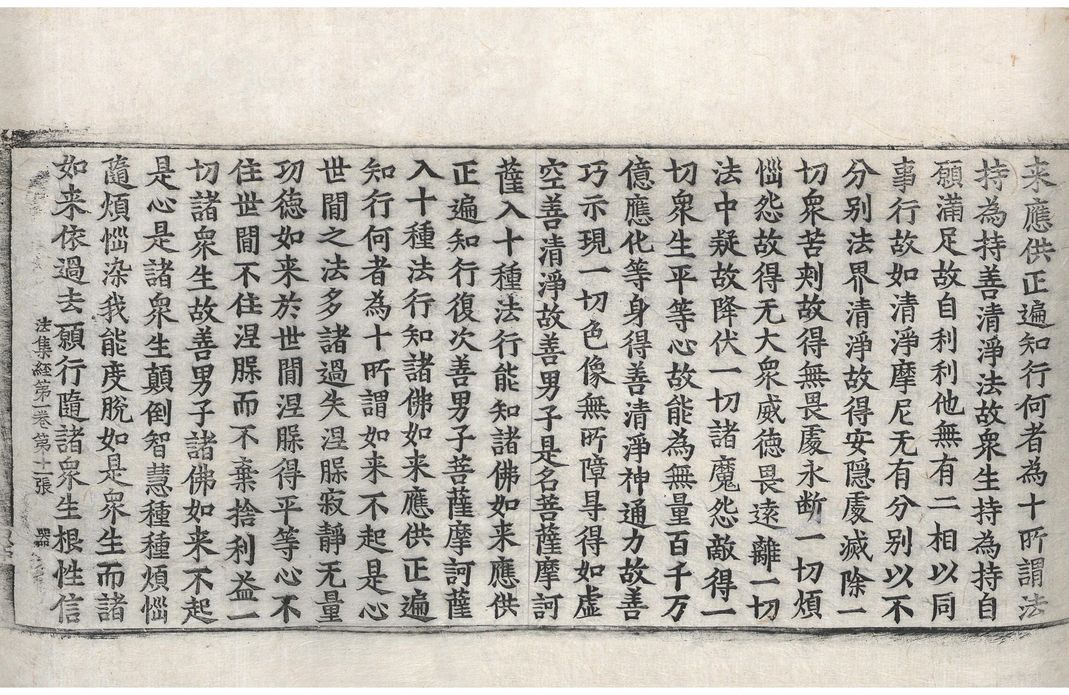 来應供正遍知行何者為十所謂法
持為持善清淨法故衆生持為持自
願滿足故自利利他無有二相以同
事行故如清淨摩尼无有分别以不
分别法界清淨故得安隱處滅除一
切衆苦刾故得無畏處永断一切煩
惱怨故得无大衆威徳畏逺離一切
法中疑故降伏一切諸魔怨敵得一
切衆生平等心故能為無量百千万
億應化等身得善清淨神通力故善
巧示現一切色像無所障㝵得如虚
空善清淨故善男子是名菩薩摩訶
薩入十種法行能知諸佛如来應供
正遍知行復次善男子菩薩摩訶薩
入十種法行知諸佛如来應供正遍
知行何者為十所謂如来不起是心
世間之法多諸過失涅脲寂静无量
功徳如来於世間涅脲得平等心不
住世間不住涅脲而不棄捨利益一
切諸衆生故善男子諸佛如来不起
是心是諸衆生顛倒智慧種種煩惱
隨煩惱染我能度脱如是衆生而諸
如来依過去願行隨諸衆生根性信
法集経第一卷 第十一張 器